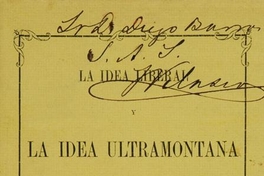 Sr D. Diego Barros
S. A. S.
LA IDEA LIBERAL
Y
LA IDEA ULTRAMONTANA